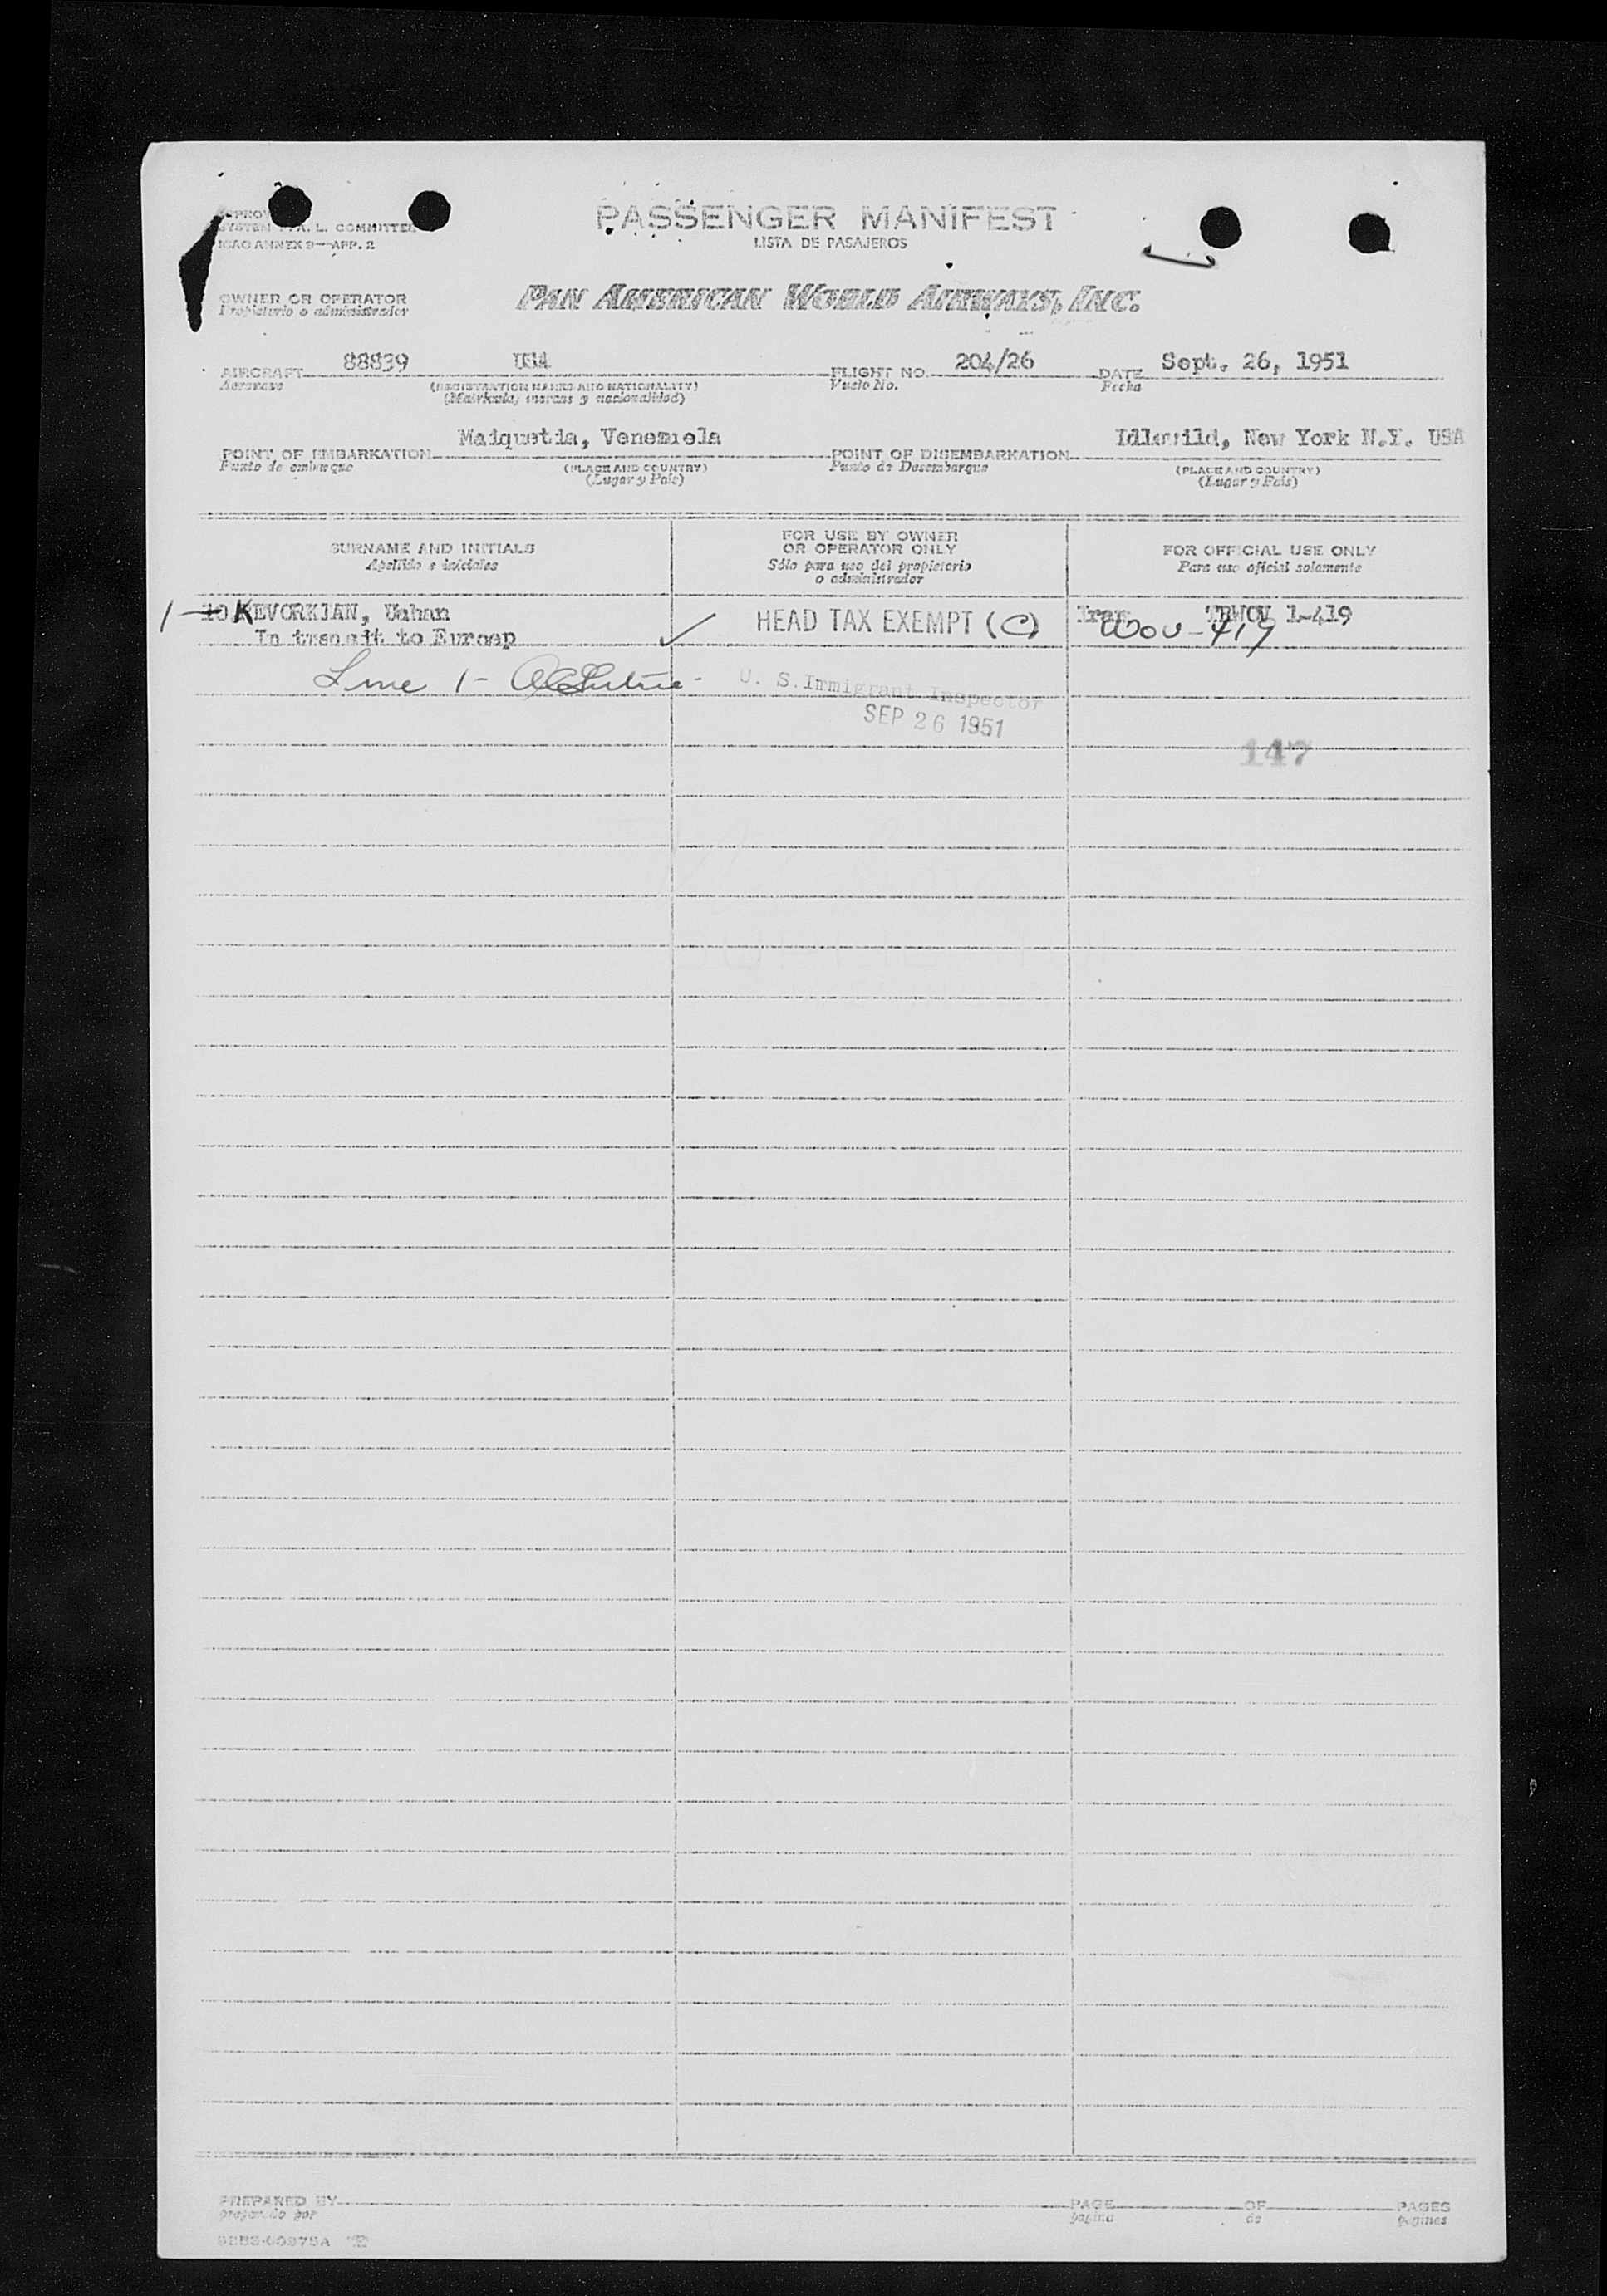 SYSTEM F. A. L. COMMITTEE
ICAO ANNEX 9—APP. 2
PASSENGER MANIFEST
LISTA DE PASAJEROS
OWNER OR OPERATOR
Propietario o administrador
PAN AMERICAN WORLD AIRWAYS, INC.
AIRCRAFT 88839 USA FLIGHT NO. 204/26 DATE Sept. 26, 1951
Aeronave (REGISTRATION MARKS AND NATIONALITY) Vuelo No. Fecha
(Matricula, marcas y nacionalidad)
POINT OF EMBARKATION Maiquetia, Venezuela POINT OF DISEMBARKATION Idlewild, New York N.Y. USA
Punto de embarque (PLACE AND COUNTRY) Punto de Desembarque (PLACE AND COUNTRY)
(Lugar y Pais) (Lugar y Pais)
SURNAME AND INITIALS
Apellido e iniciales
FOR USE BY OWNER
OR OPERATOR ONLY
Sólo para uso del propietario
o administrador
FOR OFFICIAL USE ONLY
Para uso oficial solamente
1 — 10 KEVORKIAN, Vahan HEAD TAX EXEMPT (C) Iran TRWOV 1-419
In transit to Euroep ✓ WOV-419
Line 1 -
U. S. Immigrant Inspector
SEP 26 1951
147
PREPARED BY PAGE OF PAGES
preparado por pagina de paginas